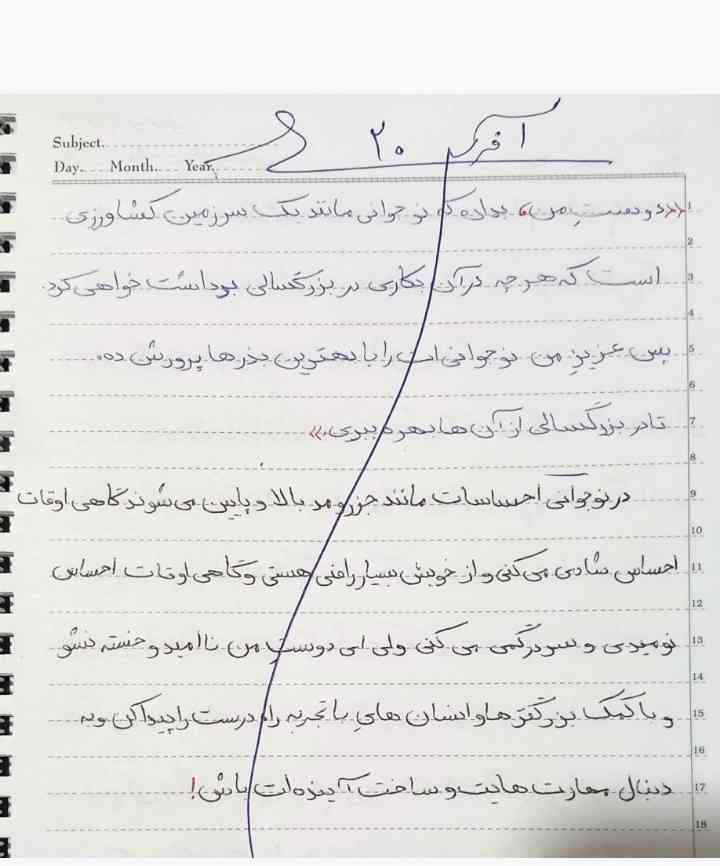 آفرین ۲۰
Subject
Day Month Year
«دوست من» بدان که نوجوانی مانند یک سرزمین کشاورزی
است که هر چه در آن بکاری در بزرگسالی برداشت خواهی کرد.
پس عزیز من نوجوانی ات را با بهترین بذرها پرورش ده.
تا در بزرگسالی از آن ها بهره ببری.»
در نوجوانی احساسات مانند جزر و مد بالا و پایین می شوند گاهی اوقات
احساس شادی می کنی و از خویش بسیار راضی هستی و گاهی اوقات احساس
نومیدی و سردرگمی می کنی ولی ای دوست من ناامید و خسته نشو
و با کمک بزرگتر ها و انسان های با تجربه راه درست را پیدا کن و به
دنبال مهارت هایت و ساخت آینده ات باش!
1
2
3
4
5
6
7
8
9
10
11
12
13
14
15
16
17
18